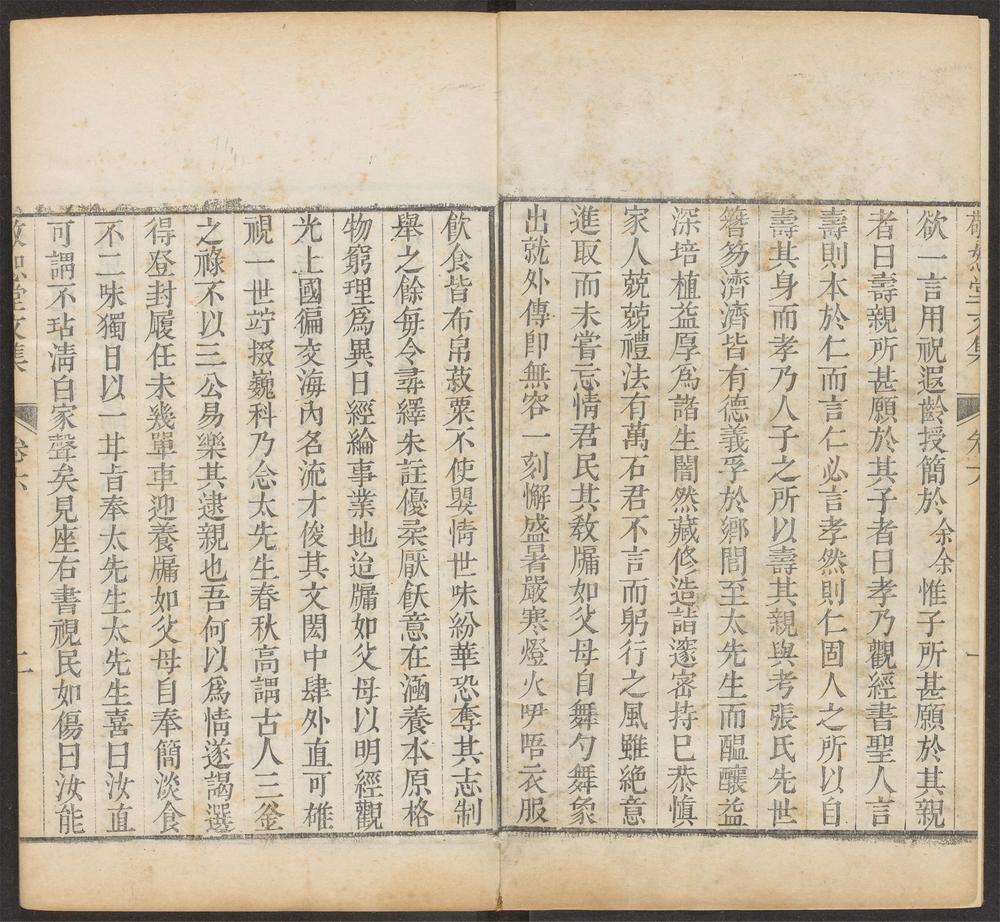 敬恕堂文集 卷六 一
欲一言用祝遐齡授簡於余余惟子所甚願於其親
者曰壽親所甚願於其子者曰孝乃觀經書聖人言
壽則本於仁而言仁必言孝然則仁固人之所以自
壽其身而孝乃人子之所以壽其親與考張氏先世
簪笏濟濟皆有德義孚於鄉閭至太先生而醞釀益
深培植益厚爲諸生闇然藏修造詣邃密持已恭慎
家人兢兢禮法有萬石君不言而躬行之風雖絶意
進取而未嘗忘情君民其敎牖如父母自舞勺舞象
出就外傳卽無容一刻懈盛暑嚴寒燈火咿唔衣服
飲食皆布帛菽粟不使㬥情世味紛華恐奪其志制
舉之餘每令尋繹朱註優柔厭飫意在涵養本原格
物窮理爲異日經綸事業地迨牖如父母以明經觀
光上國徧交海內名流才俊其文閎中肆外直可雄
視一世竚掇巍科乃念太先生春秋高謂古人三釜
之祿不以三公易樂其逮親也吾何以爲情遂謁選
得登封履任未幾單車迎養牖如父母自奉簡淡食
不二味獨日以一甘旨奉太先生太先生喜曰汝直
可謂不玷淸白家聲矣見座右書視民如傷曰汝能
敬恕堂文集 卷六 二